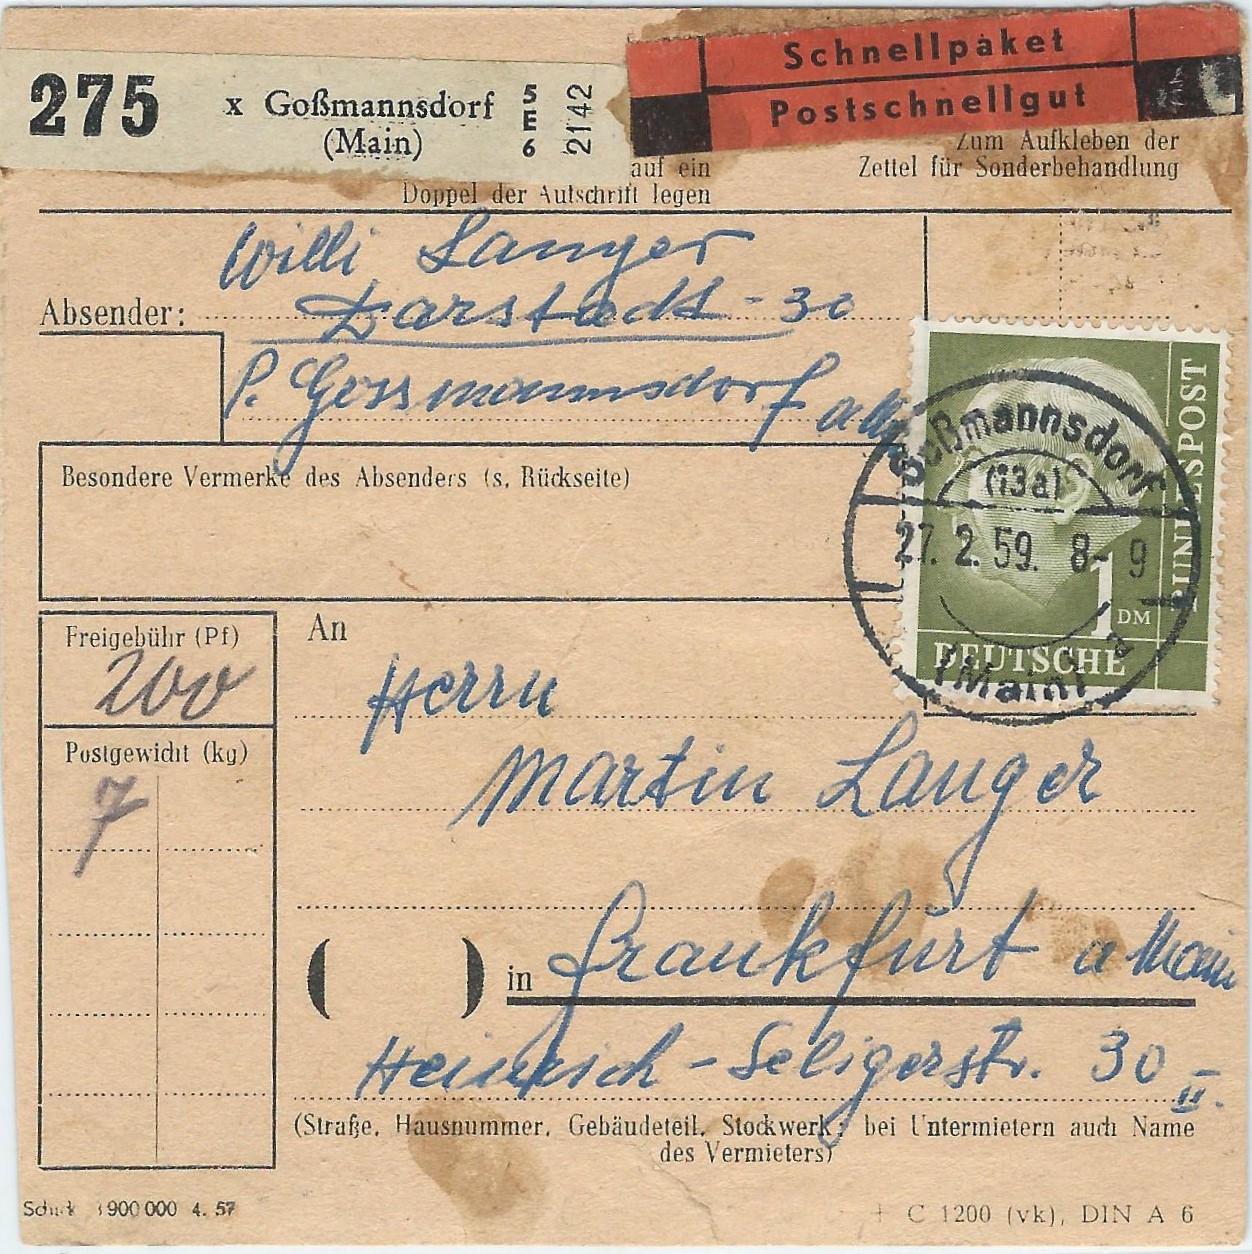 275 x Goßmannsdorf (Main) 5E6 2142
Schnellpaket
Postschnellgut
auf ein
Doppel der Aufschrift legen
Zum Aufkleben der
Zettel für Sonderbehandlung
Willi Langer
Absender: Darstadt - 30
P. Gossmannsdorf a
Besondere Vermerke des Absenders (s. Rückseite)
BUNDESPOST
1 DM
DEUTSCHE
Goßmannsdorf
(13a)
27. 2. 59. 8-9
(Main) a
Freigebühr (Pf)
200
Postgewicht (kg)
7
An
Herrn
Martin Langer
( ) in Frankfurt a Main
Heinrich-Seligerstr. 30 II.
(Straße, Hausnummer, Gebäudeteil, Stockwerk; bei Untermietern auch Name
des Vermieters)
900 000 4. 57
C 1200 (vk), DIN A 6